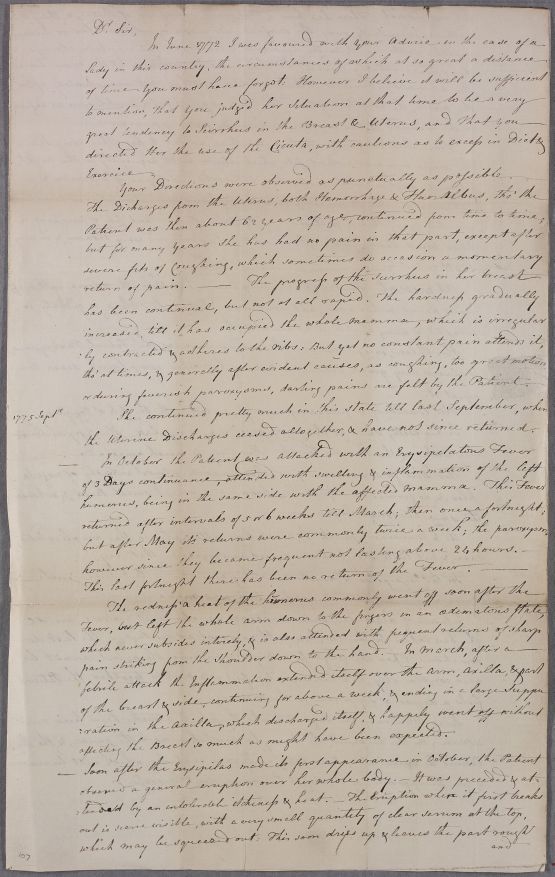 Dr Sir,
In June 1772 I was favoured with your Advice in the case of a
Lady in this country, the circumstances of which at so great a distance
of time you must have forgot. However I believe it will be sufficient
to mention, that you judged her situation at that time to be a very
great tendency to Scirrhus in the Breast & Uterus, and that you
directed Her the use of the Cicuta, with cautions as to excess in Diet &
Exercise
Your Directions were observed as punctually as possible.
The Discharges from the Uterus, both Hemorrhage & Fluor Albus, tho' the
Patient was then about 62 years of age, continued from time to time;
but for many years she has had no pain in that part, except after
severe fits of Coughing, which sometimes do occasion a momentary
return of pain. — The progress of the scirrhus in her breast
has been continual, but not at all rapid. The hardness gradually
increased till it has occupied the whole mamma, which is irregular
:ly contracted & adheres to the ribs: But yet no constant pain attends it,
tho' at times, & generally after evident causes, as coughing, too great motion
or during feverish paroxysms, darting pains are felt by the Patient. —
1775 Septr
She continued pretty much in this state till last September, when
the Uterine Discharges ceased altogether, & have not since returned.
In October the Patient was attacked with an Erysipelatous Fever
of 3 Days continuance, attended with swelling & inflammation of the left
humerus, being in the same side with the affected mamma. This Fever
returned after intervals of 5 or 6 weeks till March; then once a fortnight;
but after May its returns were commonly twice a week; the paroxysm,
however since they became frequent not lasting above 24 hours. —
This last fortnight there has been no return of the Fever. —
The redness & heat of the humerus commonly went off soon after the
Fever, but left the whole arm down to the fingers in an odematous state,
which never subsides intirely, & is also attended with frequent returns of sharp
pain striking from the shoulder down to the hand. — In March, after a
febrile attack the Inflammation extended itself over the arm, axilla, & part
of the breast & side, continuing for above a week, & ending in a large Suppu
:ration in the Axilla, which discharged itself, & happily went off without
affecting the Breast so much as might have been expected.
Soon after the Erysipilas made its first appearance in October, the Patient
observed a general eruption over her whole body. — It was preceded & at-
:tended by an intolerable itchiness & heat. — The Eruption where it first breaks
out is scarce visible, with a very small quantity of clear serum at the top,
which may be squeezed out. This soon dries up & leaves the part rough
and
107